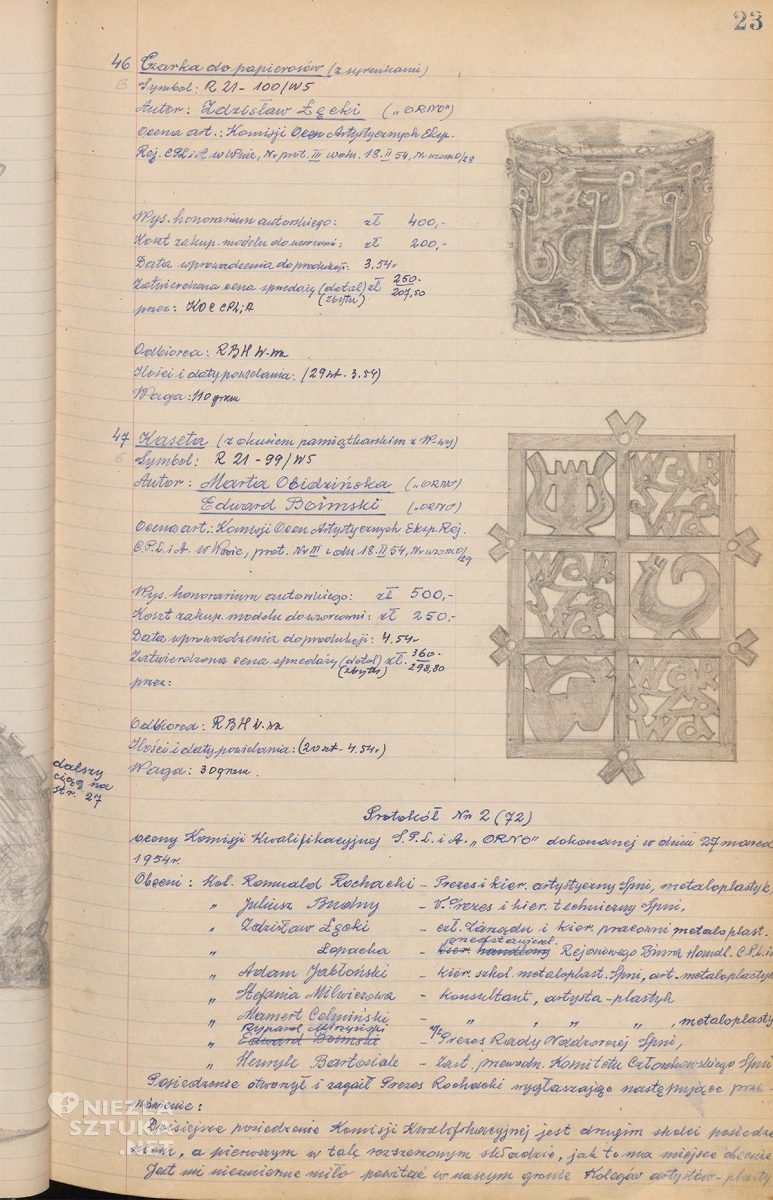 23
46 Czarka do papierosów (z syrenkami)
6 Symbol: R 21-100/W5
Autor: Zdzisław Łęcki („ORNO")
Ocena art.: Komisji Ocen Artystycznych Eksp.
Rej. CPLiA w W-wie, Nr prot. III w dn. 18.II 54, Nr wzoru 0/28
Wys. honorarium autorskiego: zł 400,-
Koszt zakup. modelu do wzorcowni: zł 200,-
Data wprowadzenia do produkcji: 3.54r
Zatwierdzona cena sprzedaży (detal) zł 250.-
(zbytu) 207,50
przez: KOC CPLiA
Odbiorca: RBH W-wa
Ilości i daty powielania: (29 szt. 3.54)
Waga: 110 gram
47 Kaseta (z okuciem pamiątkarskim z W-wy)
6 Symbol: R 21-99/W5
Autor: Marta Obidzińska („ORNO")
Edward Boimski („ORNO")
Ocena art.: Komisji Ocen Artystycznych Eksp. Rej.
C.P.L.i A. w W-wie, prot. Nr III z dn. 18.II 54, Nr wzoru 0/29
Wys. honorarium autorskiego: zł 500,-
Koszt zakup. modelu do wzorcowni: zł 250,-
Data wprowadzenia do produkcji: 4.54r
Zatwierdzona cena sprzedaży (detal) zł. 360.-
(zbytu) 298,80
przez:
Odbiorca: RBH W-wa
Ilości i daty powielania: (20 szt - 4.54r)
Waga: 30 gram.
WAR
SZA
WA
WAR
SZA
WA
WAR
SZA
WA
dalszy
ciąg na
str. 27
Protokół Nr 2 (72)
oceny Komisji Kwalifikacyjnej S.P.L. i A. „ORNO" dokonanej w dniu 27 marca
1954r.
Obecni: Kol. Romuald Rochacki – Prezes i kier. artystyczny Spni, metaloplastyk,
„ Juliusz Budny – V. Prezes i kier. techniczny Spni,
„ Zdzisław Łęcki – czł. Zarządu i kier. pracowni metaloplast.
przedstawiciel
„ Łopacka – kier. handlowy Rejonowego Biura Handl. C.P.L.i
„ Adam Jabłoński – kier. szkol. metaloplast. Spni, art.-metaloplastyk
„ Stefania Milwiczowa – konsultant, artysta-plastyk
„ Mamert Celmiński – „ , „ „ , metaloplastyk
Ryszard
„ Edward Boimski – Prezes Rady Nadzorczej Spni,
„ Henryk – Zast. przewodn. Komitetu Członkowskiego Spni
Posiedzenie otworzył i zagaił Prezes Rochacki wygłaszając następujące prze-
mówienie:
Dzisiejsze posiedzenie Komisji Kwalifikacyjnej jest drugim skolei posiedze-
niem, a pierwszym w tak rozszerzonym składzie, jak to ma miejsce obecnie
Jest mi niezmiernie miło powitać w naszym gronie Kolegów artystów-plasty
NIEZŁA
SZTUKA
.NET